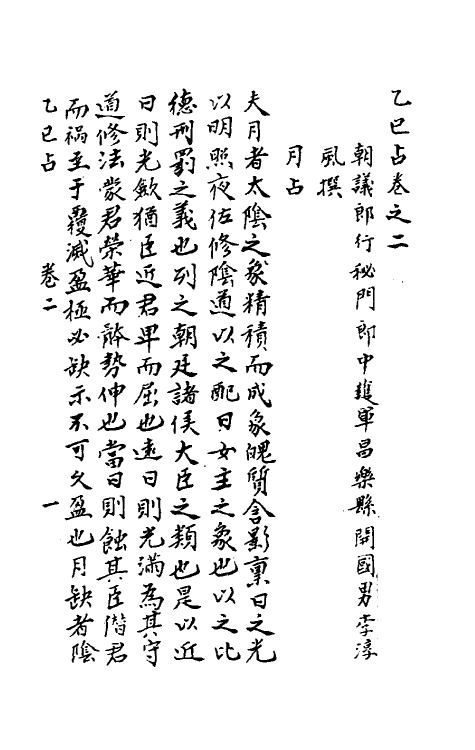 乙巳占卷之二
朝議郎行秘門郎中護軍昌樂縣開國男李淳
風撰
月占
夫月者太陰之象精積而成象魄質含影稟日之光
以明照夜佐修陰道以之配日女主之象也以之比
德刑罰之義也列之朝廷諸侯大臣之類也是以近
日則光歛猶臣近君卑而屈也遠日則光滿為其守
道修法蒙君榮華而體勢伸也當日則蝕其臣僭君
道而禍至于覆滅盈極必缺示不可久盈也月缺者陰
乙巳占
卷二
一